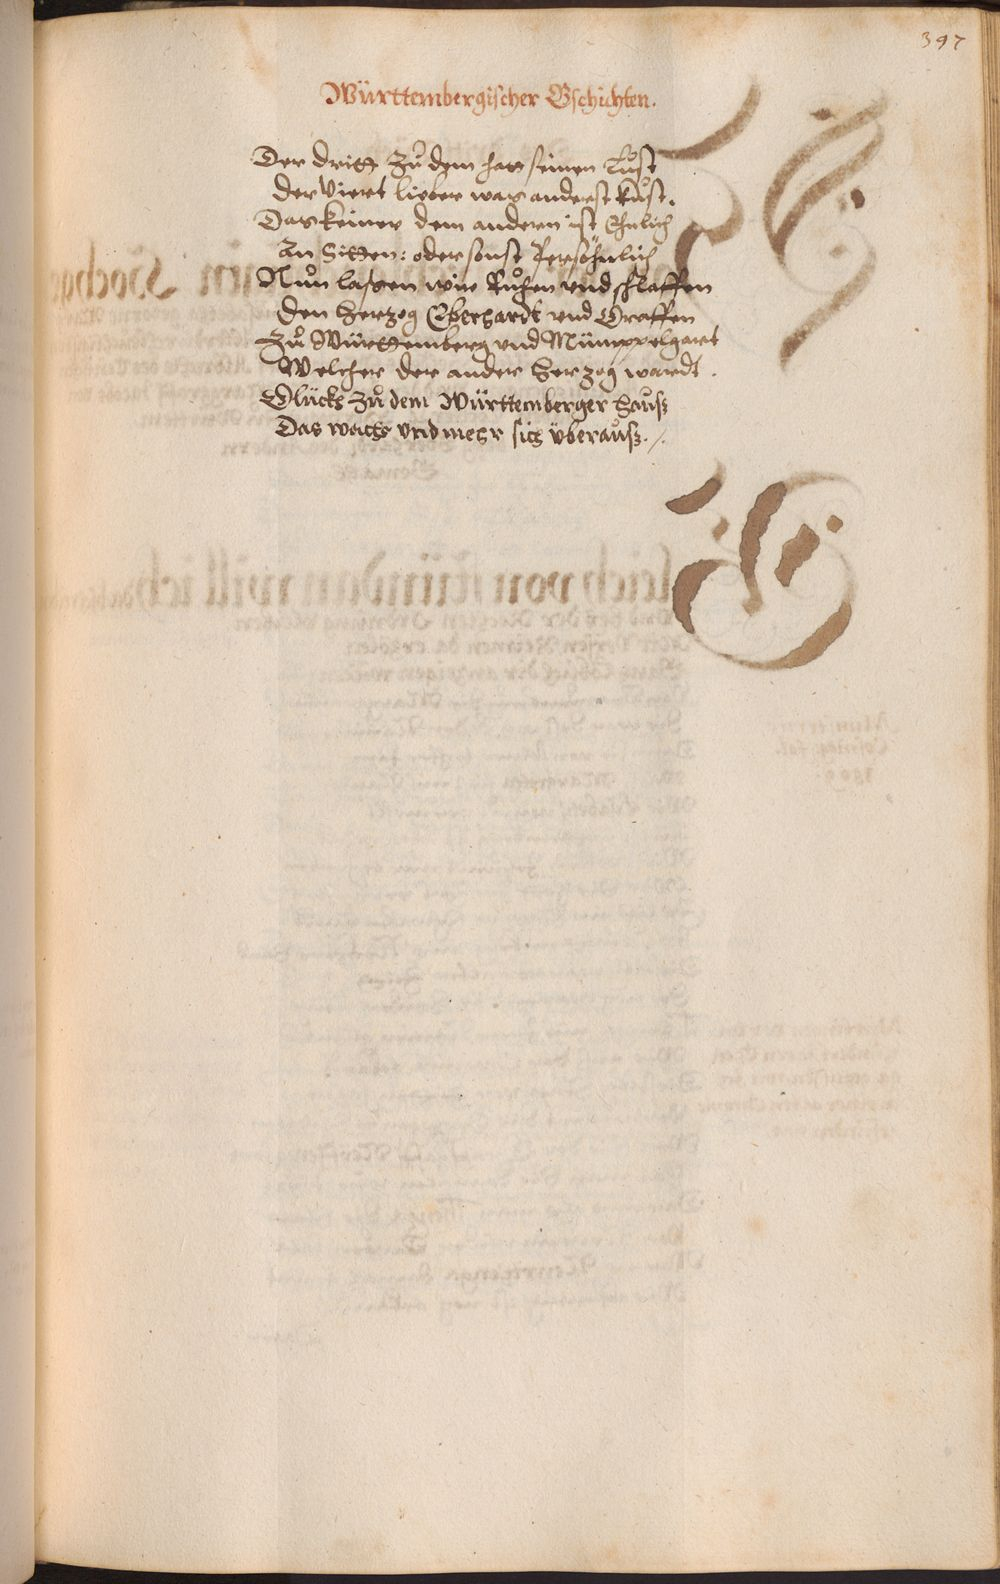 397
Württembergischer Gschichten.
Der dritt zů dem hatt seinen Lůst
der Viert lieber was anderst kůst.
Das keiner dem andern ist Ehnlich
An Sitten: oder sonst Persöhnlich
Nůn lassen wir Růhen vnd schlaffen
den Hertzog Eberhardt vnd Graffen
Zů Württemberg vnd Mümppelgart
Welcher der ander Hertzog wardt.
Glückh zů dem Württemberger Hauß
Das wachs vnd mehr sich überauß. /.